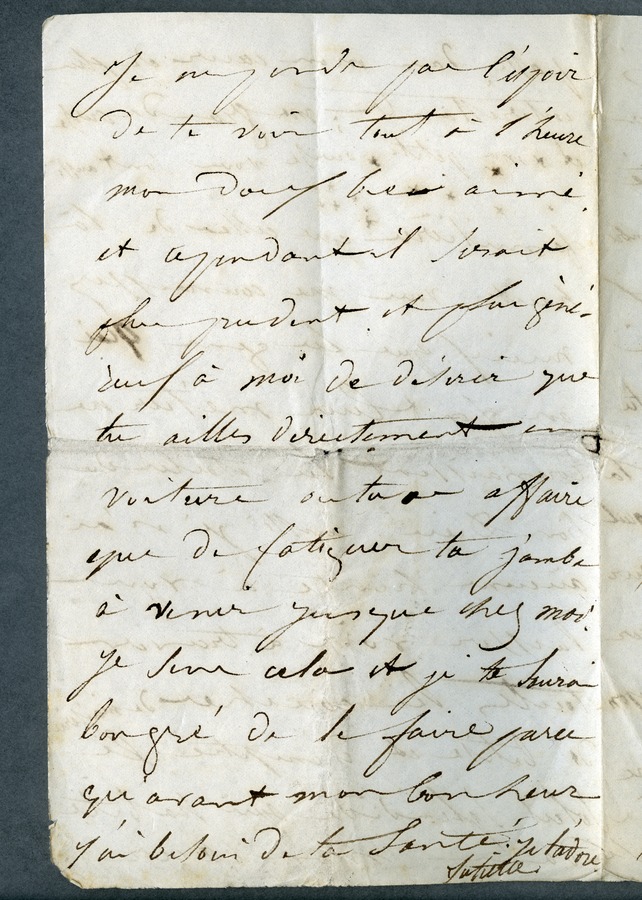 Je ne perds pas l'espoir
de te voir tout à l'heure
mon doux bien aimé,
et cependant il serait
plus prudent et plus géné-
reux à moi de désirer que
tu ailles directement en
voiture où tu as affaire
que de fatiguer ta jambe
à venir jusque chez moi.
Je sens cela et je te saurai
bon gré de le faire parce
qu'avant mon bonheur
j'ai besoin de ta santé. Je t'adore
Juliette